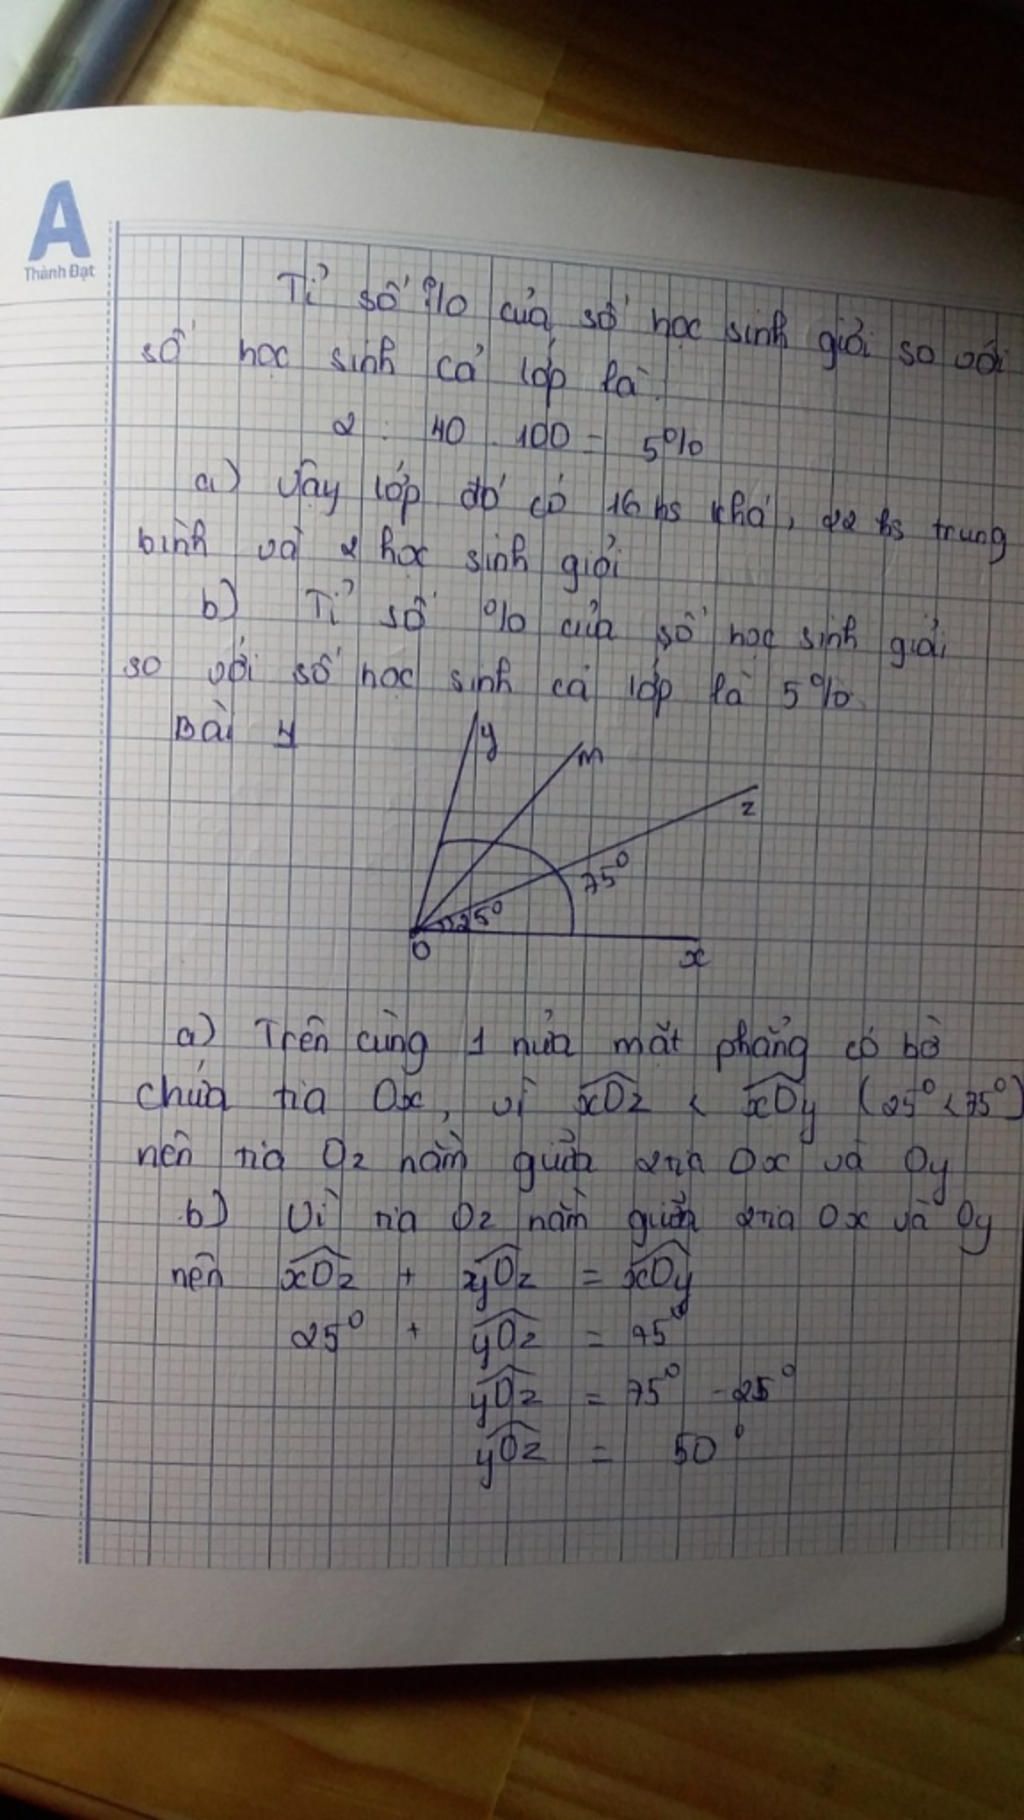 A
Thành Đạt
Tỉ số % của số học sinh giỏi so với
số học sinh cả lớp là:
2 : 40 . 100 = 5%
a) Vậy lớp đó có 16 hs khá, 22 hs trung
bình và 2 học sinh giỏi
b) Tỉ số % của số học sinh giỏi
so với số học sinh cả lớp là 5%
Bài 4
y
m
z
75°
25°
O
x
a) Trên cùng 1 nửa mặt phẳng có bờ
chứa tia Ox, vì xOz < xOy (25° < 75°)
nên tia Oz nằm giữa 2 tia Ox và Oy
b) Vì tia Oz nằm giữa 2 tia Ox và Oy
nên xOz + yOz = xOy
25° + yOz = 75°
yOz = 75° - 25°
yOz = 50°